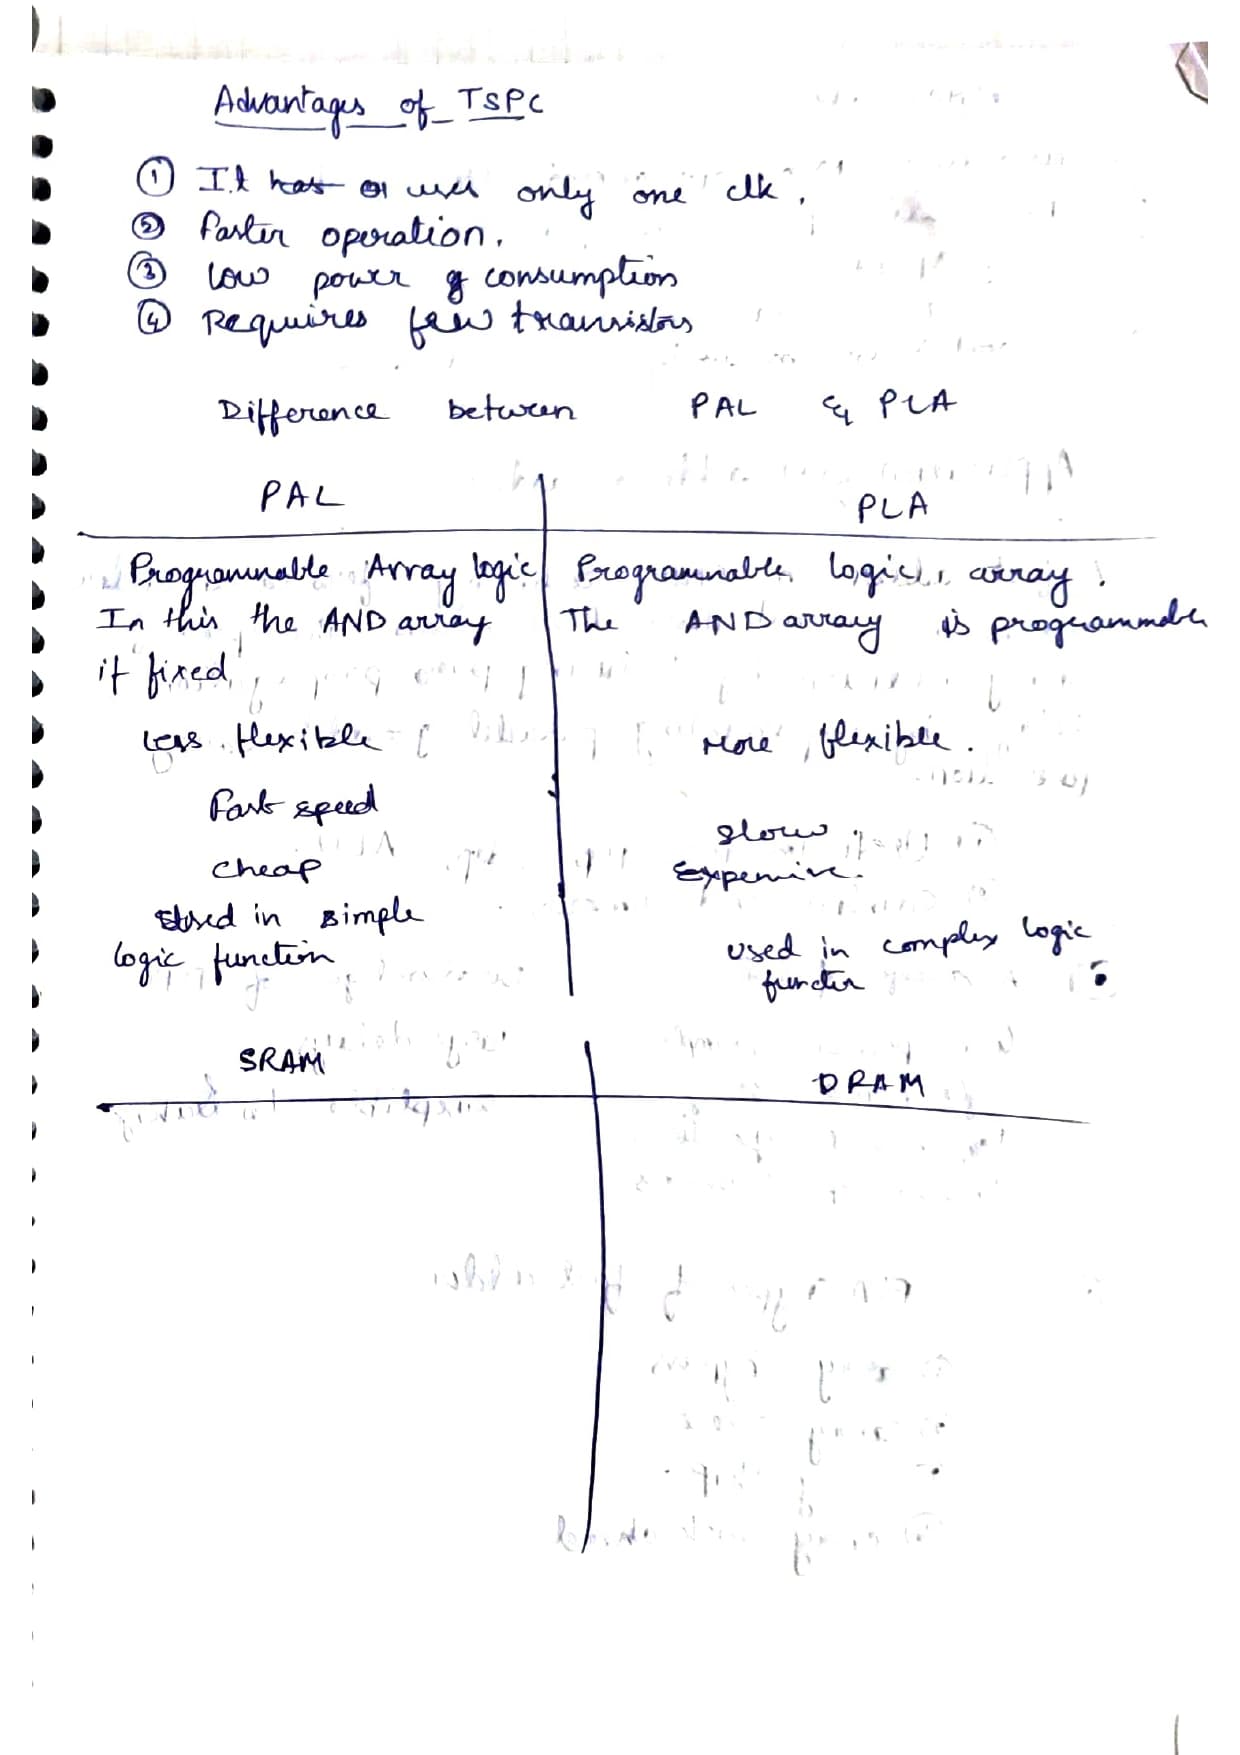 Advantages of TSPC
① It has or uses only one clk.
② Faster operation.
③ low power consumption
④ Requires few transistors
Difference between PAL & PLA
PAL
PLA
Programmable Array logic
Programmable logic array.
In this the AND array
The AND array is programmable
if fixed
Less flexible
More flexible.
Fast speed
Slow
Cheap
Expensive.
Used in simple
logic function
Used in complex logic
function
SRAM
DRAM